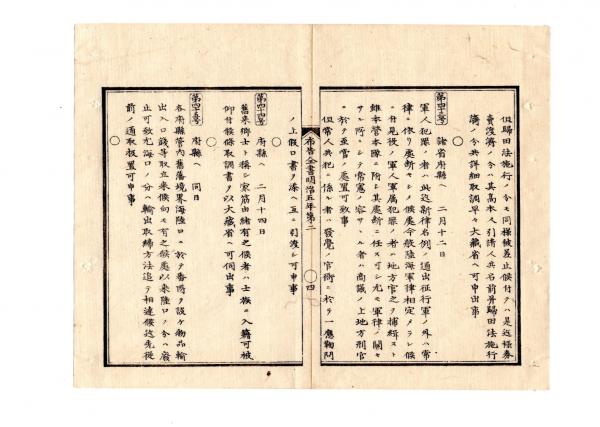 但歸田法施行ノ分モ同樣被差止候付テハ是迄帳券
賣渡濟ノ分ハ其高並人引請人共名前等歸田法施行
濟ノ分共詳細取調早々大藏省ヘ可申出事
○
第四十三號 諸省府縣ヘ 二月十二日
軍人犯罪ノ者ハ此迄新律名例ノ通出征行軍ノ外ハ常
律ニ依リ處斷セシメ候處今般陸海軍律相定メラレ候
付自後ハ軍人軍屬犯罪ノ者ハ地方官之ヲ捕緝スト
雖本營本隊ニ附シ其處斷ニ任スヘシ尤モ軍律ニ關セ
サル所ニシテ常憲ニ容サヽル者ハ商議ノ上地方刑官
ニ於テ至當ノ處置可致事
但常人共犯ニ係ル者ハ發覺ノ官衙ニ於テ一應鞠問
布告全書明治五年第二 ○ 四
ノ上假口書ヲ添ヘ互ニ引渡シ可申事
○
第四十四號 府縣ヘ 二月十四日
舊來鄕士ト稱シ家筋由緒有之候者ハ士族ニ入籍可被
仰付候條取調書ヲ以大藏省ヘ可伺出事
○
第四十五號 府縣ヘ 同日
各府縣管內舊藩境界海陸口々ニ於テ番所ヲ設ケ物品輸
出入口錢等取立來候向モ有之候處以來陸口ノ分ハ廢
止可致尤海口ノ分ハ輸出取締方法追テ相達候迄先從
前ノ通取扱置可申事
○